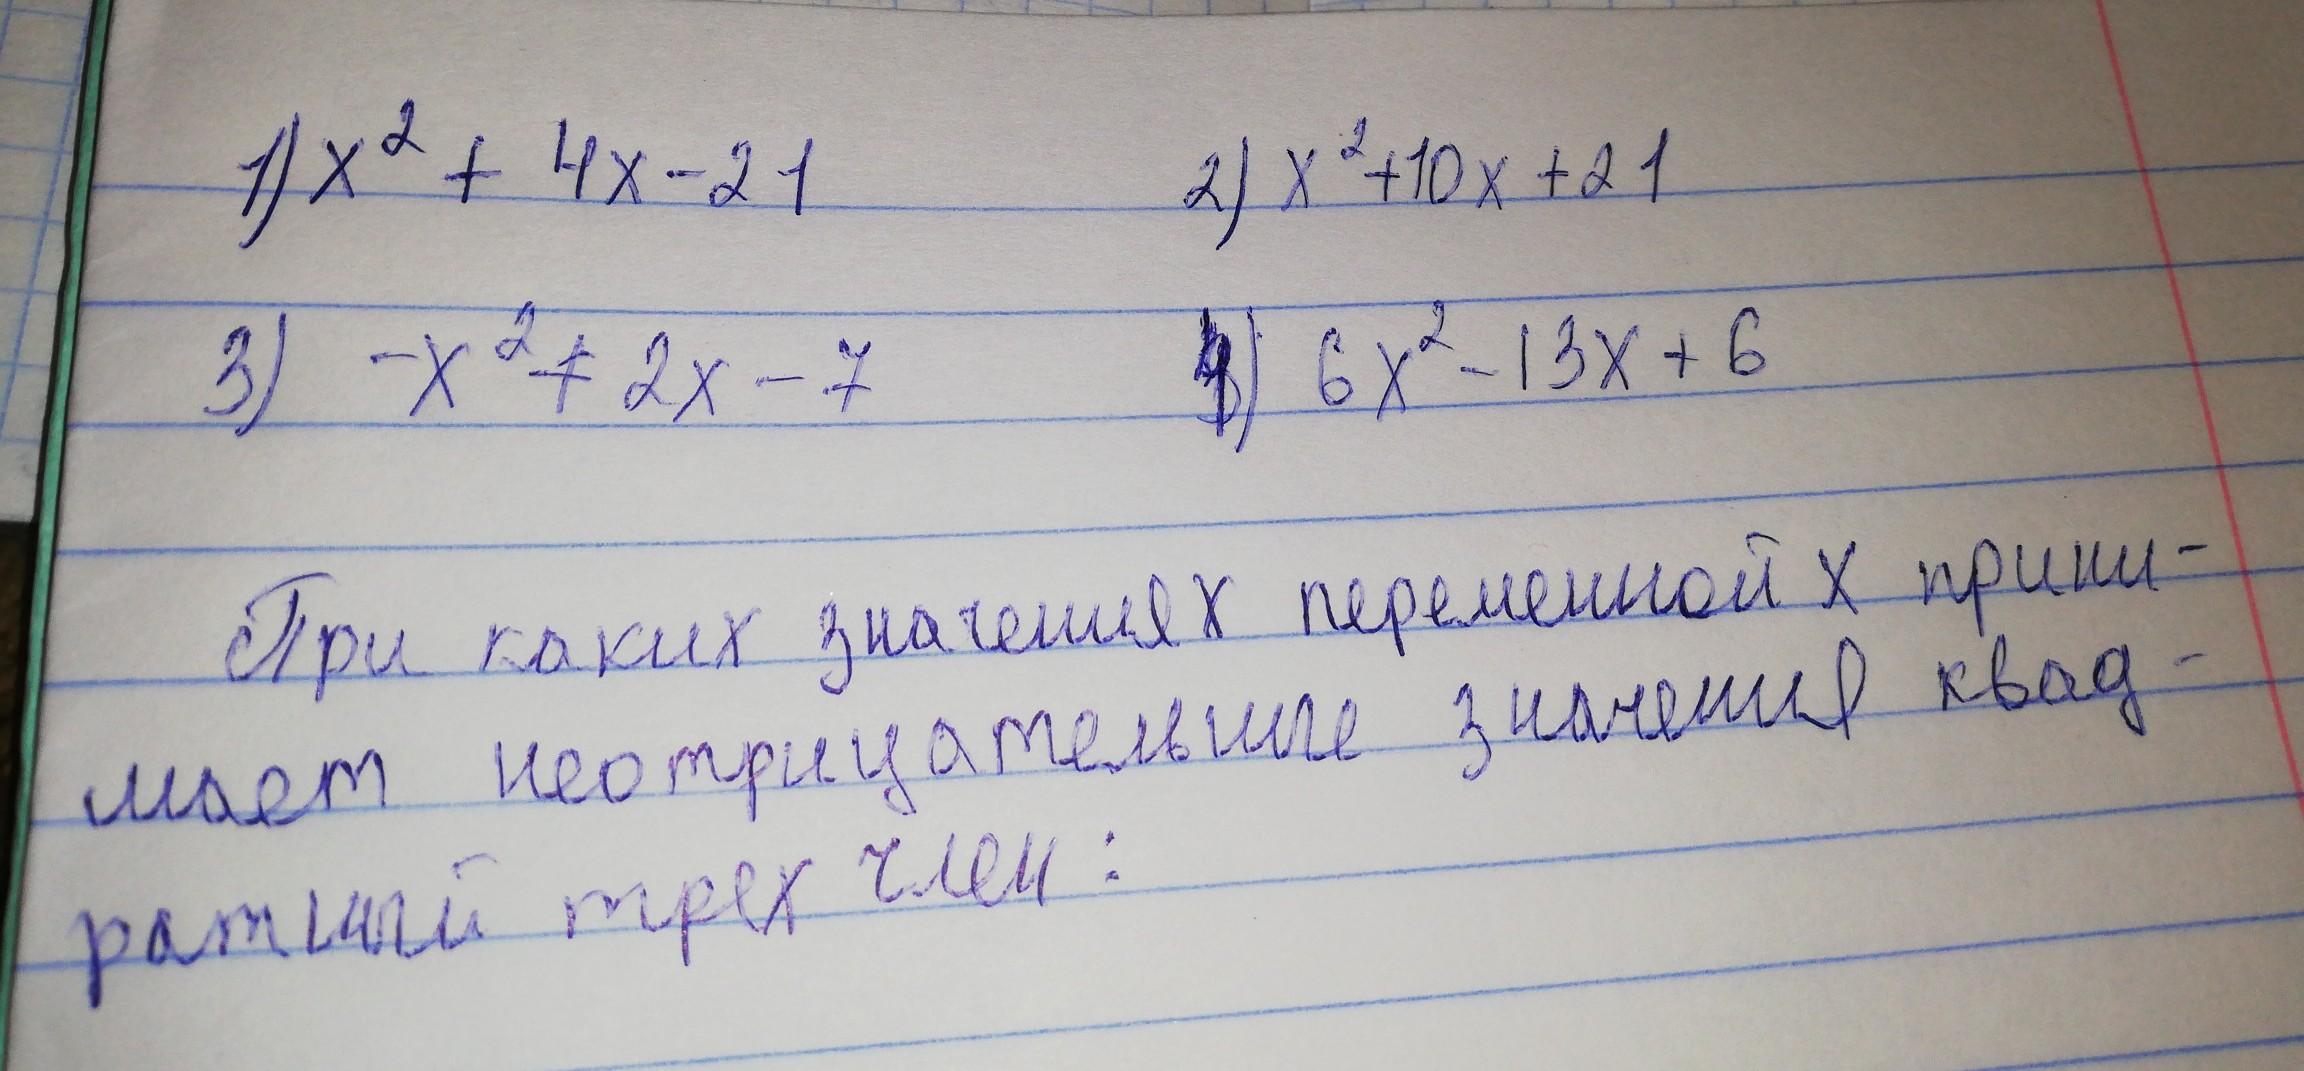 1) x² + 4x - 21 2) x² + 10x + 21
3) -x² + 2x - 7 4) 6x² - 13x + 6
При каких значениях переменной х прини-
мает неотрицательные значения квад-
ратный трех член: